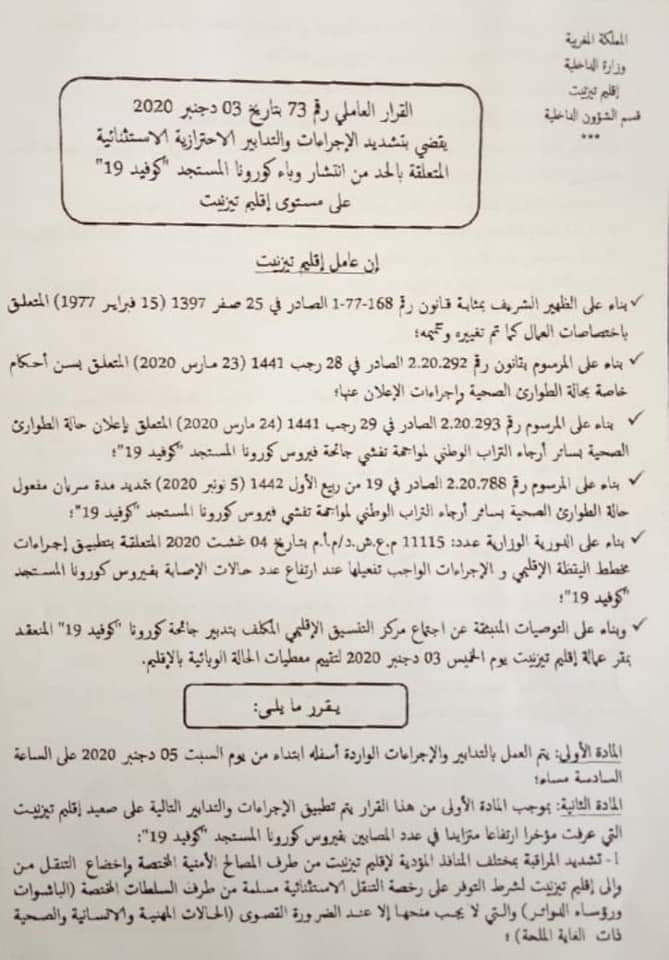 المملكة المغربية
وزارة الداخلية
إقليم تيزنيت
قسم الشؤون الداخلية
***
القرار العاملي رقم 73 بتاريخ 03 دجنبر 2020
يقضي بتشديد الإجراءات والتدابير الاحترازية الاستثنائية
المتعلقة بالحد من انتشار وباء كورونا المستجد "كوفيد 19"
على مستوى إقليم تيزنيت
إن عامل إقليم تيزنيت
✓ بناء على الظهير الشريف بمثابة قانون رقم 168-77-1 الصادر في 25 صفر 1397 (15 فبراير 1977) المتعلق
باختصاصات العمال كما تم تغييره وتتميمه؛
✓ بناء على المرسوم بقانون رقم 2.20.292 الصادر في 28 رجب 1441 (23 مارس 2020) المتعلق بسن أحكام
خاصة بحالة الطوارئ الصحية وإجراءات الإعلان عنها؛
✓ بناء على المرسوم رقم 2.20.293 الصادر في 29 رجب 1441 (24 مارس 2020) المتعلق بإعلان حالة الطوارئ
الصحية بسائر أرجاء التراب الوطني لمواجهة تفشي جائحة فيروس كورونا المستجد "كوفيد 19"؛
✓ بناء على المرسوم رقم 2.20.788 الصادر في 19 من ربيع الأول 1442 (5 نونبر 2020) بتمديد مدة سريان مفعول
حالة الطوارئ الصحية بسائر أرجاء التراب الوطني لمواجهة تفشي فيروس كورونا المستجد "كوفيد 19"؛
✓ بناء على الدورية الوزارية عدد: 11115 م.ع.ش.د/م.أ.م بتاريخ 04 غشت 2020 المتعلقة بتطبيق إجراءات
مخطط اليقظة الإقليمي و الإجراءات الواجب تفعيلها عند ارتفاع عدد حالات الإصابة بفيروس كورونا المستجد
"كوفيد 19"؛
✓ وبناء على التوصيات المنبثقة عن اجتماع مركز التنسيق الإقليمي المكلف بتدبير جائحة كورونا "كوفيد 19" المنعقد
بمقر عمالة إقليم تيزنيت يوم الخميس 03 دجنبر 2020 لتقييم معطيات الحالة الوبائية بالإقليم.
يـقـرر ما يلي:
المادة الأولى: يتم العمل بالتدابير والإجراءات الواردة أسفله ابتداء من يوم السبت 05 دجنبر 2020 على الساعة
السادسة مساء؛
المادة الثانية: بموجب المادة الأولى من هذا القرار يتم تطبيق الإجراءات والتدابير التالية على صعيد إقليم تيزنيت
التي عرفت مؤخرا ارتفاعا متزايدا في عدد المصابين بفيروس كورونا المستجد "كوفيد 19":
أ- تشديد المراقبة بمختلف المنافذ المؤدية لإقليم تيزنيت من طرف المصالح الأمنية المختصة وإخضاع التنقل من
وإلى إقليم تيزنيت لشرط التوفر على رخصة التنقل الاستثنائية مسلمة من طرف السلطات المختصة (الباشوات
ورؤساء الدوائر) والتي لا يجب منحها إلا عند الضرورة القصوى (الحالات المهنية والانسانية والصحية
ذات الغاية الملحة) ؛